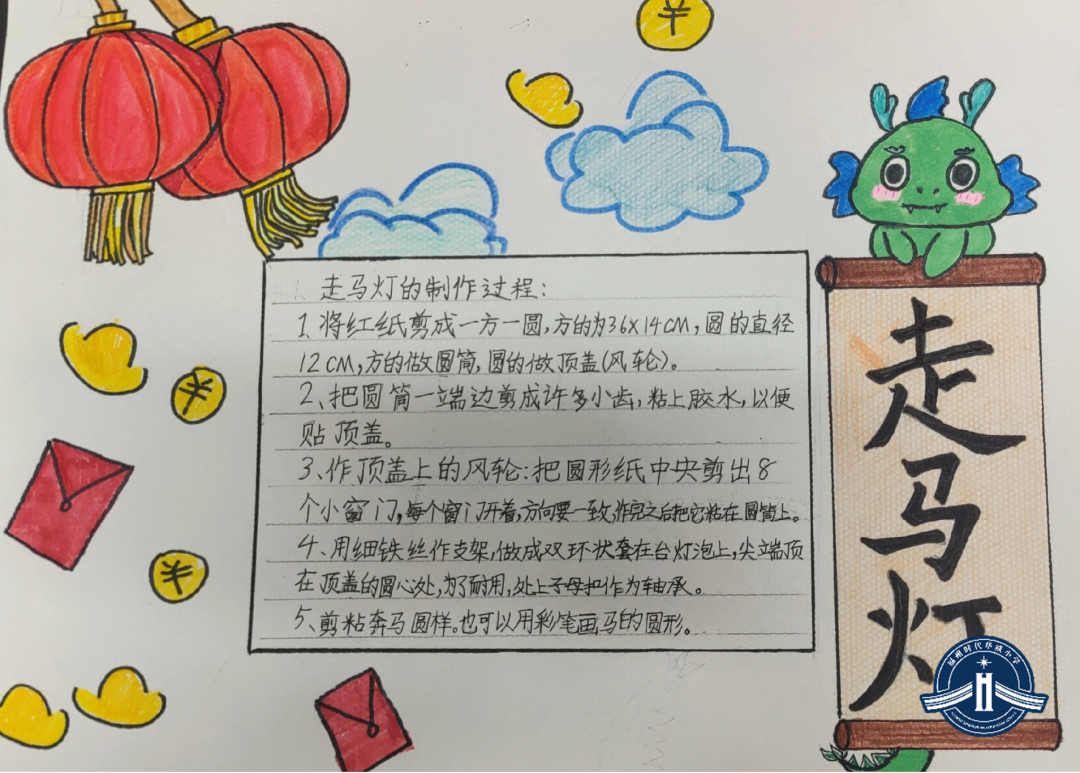 走马灯的制作过程:
1、将红纸剪成一方一圆,方的为36X14CM,圆的直径
12CM,方的做圆筒,圆的做顶盖(风轮)。
2、把圆筒一端边剪成许多小齿,粘上胶水,以便
贴顶盖。
3、作顶盖上的风轮:把圆形纸中央剪出8
个小窗门,每个窗门开着,方向要一致,作完之后把它粘在圆筒上。
4、用细铁丝作支架,做成双环状套在台灯泡上,尖端顶
在顶盖的圆心处,为了耐用,处上子母扣作为轴承。
5、剪粘奔马圆样。也可以用彩笔画马的圆形。
走马灯
福州时代华威小学